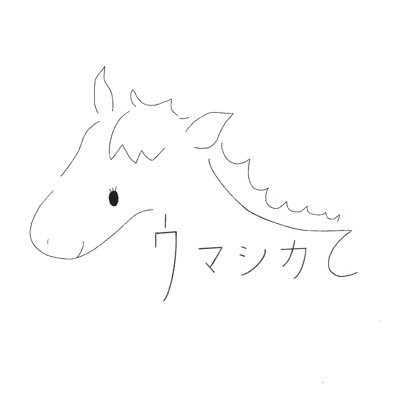 ウマシカて